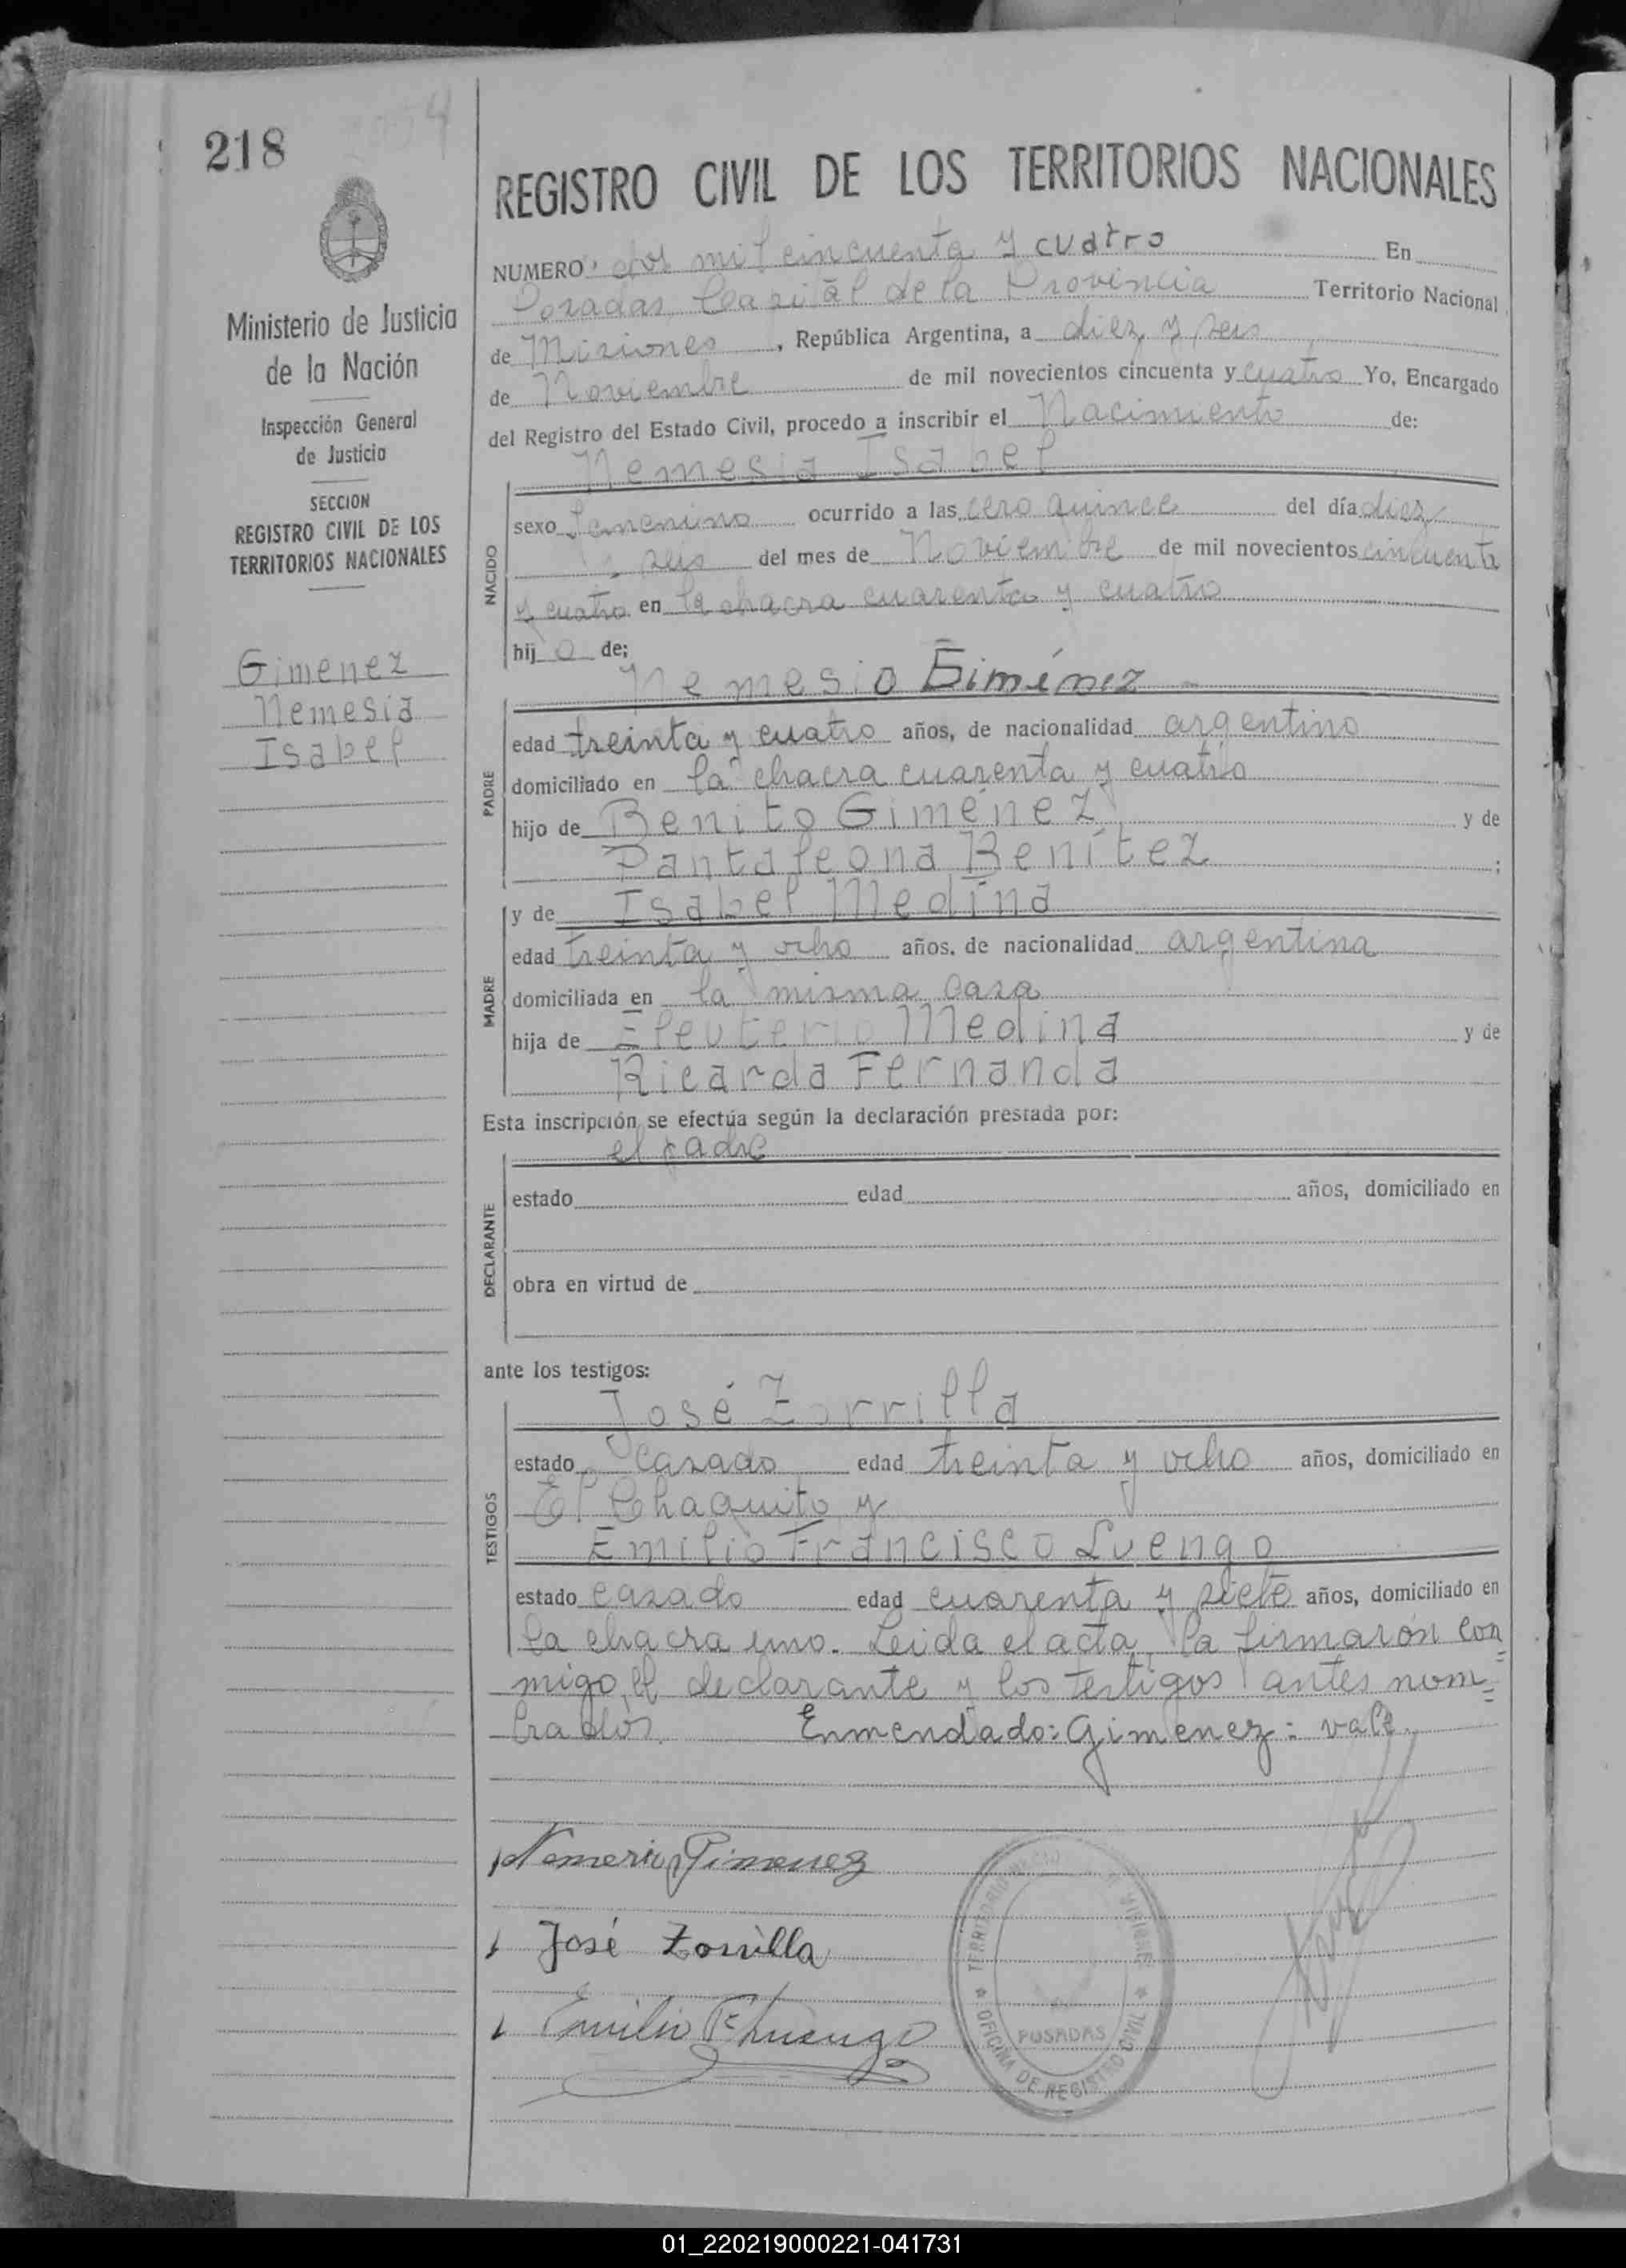 218
2054
Ministerio de Justicia
de la Nación
Inspección General
de Justicia
SECCION
REGISTRO CIVIL DE LOS
TERRITORIOS NACIONALES
Gimenez
Nemesia
Isabel
REGISTRO CIVIL DE LOS TERRITORIOS NACIONALES
NUMERO dos mil cincuenta y cuatro En
Posadas, Capital de la Provincia Territorio Nacional
de Misiones, República Argentina, a diez y seis
de Noviembre de mil novecientos cincuenta y cuatro Yo, Encargado
del Registro del Estado Civil, procedo a inscribir el Nacimiento de:
Nemesia Isabel
NACIDO
sexo femenino ocurrido a las cero quince del día diez
y seis del mes de Noviembre de mil novecientos cincuenta
y cuatro en la chacra cuarenta y cuatro
hija de;
Nemesio Giménez
PADRE
edad treinta y cuatro años, de nacionalidad argentino
domiciliado en la chacra cuarenta y cuatro
hijo de Benito Giménez y de
Pantaleona Benítez ;
y de Isabel Medina
MADRE
edad treinta y ocho años, de nacionalidad argentina
domiciliada en la misma casa
hija de Eleuterio Medina y de
Ricarda Fernanda
Esta inscripción se efectúa según la declaración prestada por:
el padre
DECLARANTE
estado edad años, domiciliado en
obra en virtud de
ante los testigos:
José Zorrilla
TESTIGOS
estado casado edad treinta y ocho años, domiciliado en
El Chaquito y
Emilio Francisco Luengo
estado casado edad cuarenta y siete años, domiciliado en
la chacra uno. Leida el acta, la firmarón con=
migo, el declarante y los testigos antes nom=
brados. Enmendado: Gimenez: vale
Nemesio Gimenez
José Zorrilla
Emilio F. Luengo
POSADAS
OFICINA DE REGISTRO CIVIL
01_220219000221-041731